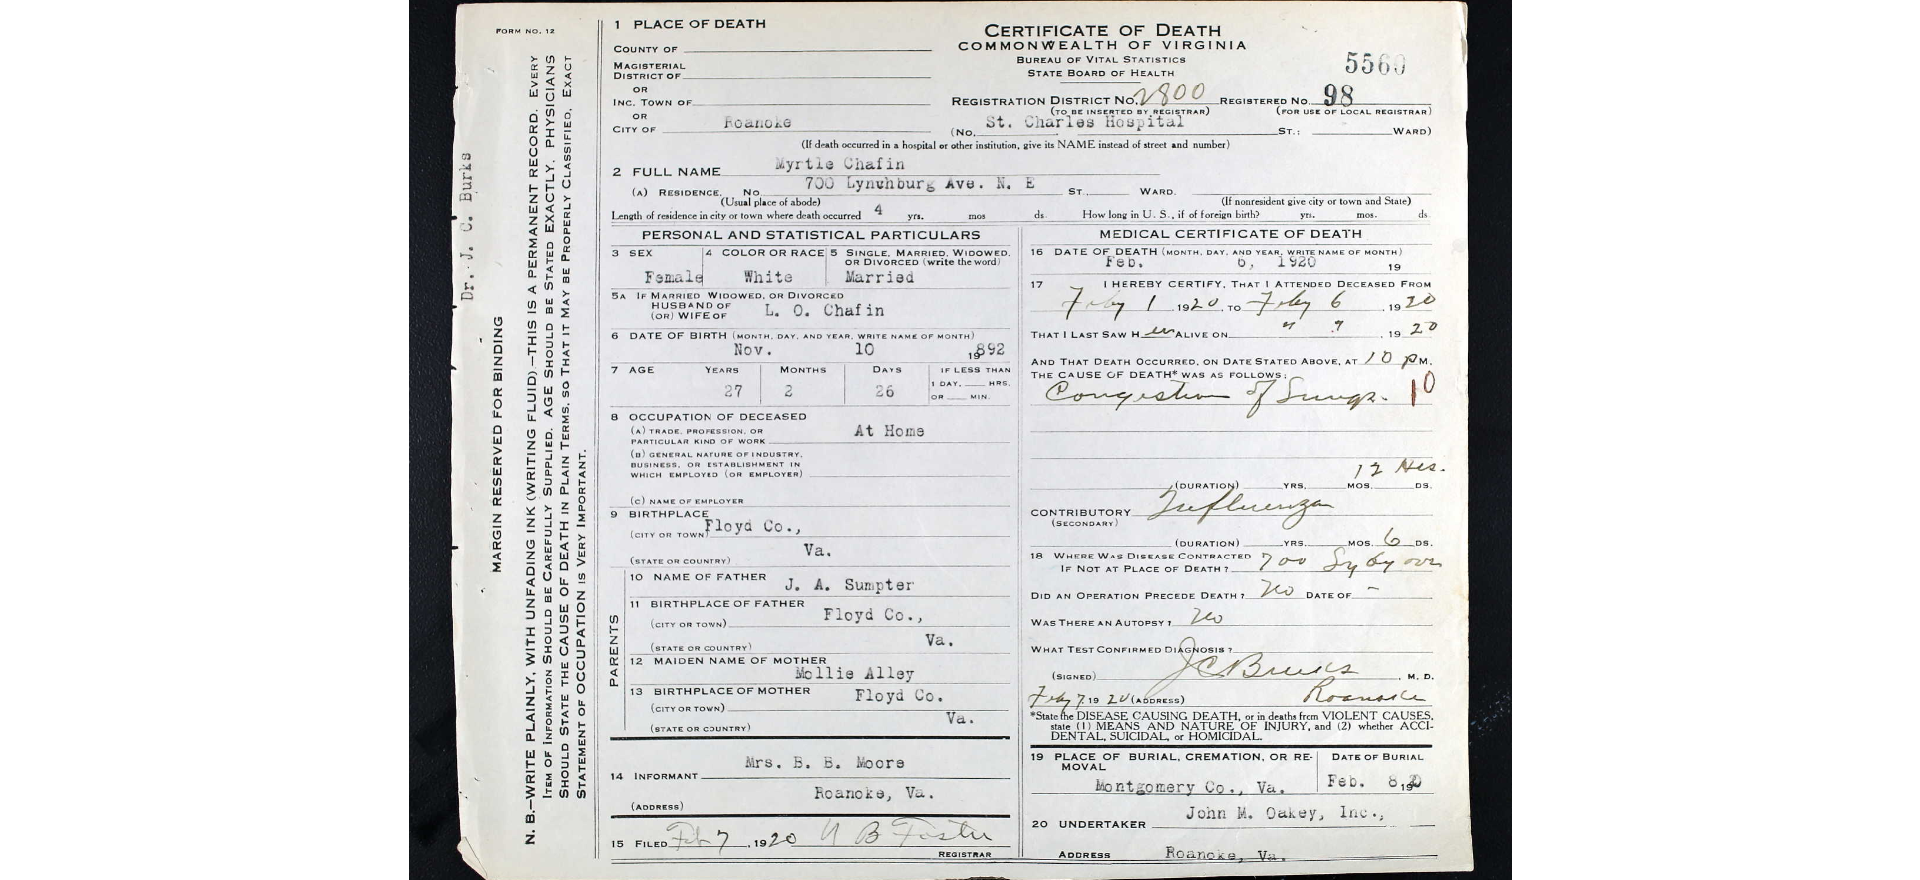 FORM NO. 12
MARGIN RESERVED FOR BINDING
N. B.—WRITE PLAINLY, WITH UNFADING INK (WRITING FLUID).—THIS IS A PERMANENT RECORD. EVERY
ITEM OF INFORMATION SHOULD BE CAREFULLY SUPPLIED. AGE SHOULD BE STATED EXACTLY. PHYSICIANS
SHOULD STATE THE CAUSE OF DEATH IN PLAIN TERMS, SO THAT IT MAY BE PROPERLY CLASSIFIED. EXACT
STATEMENT OF OCCUPATION IS VERY IMPORTANT.
Dr. J. C. Burks
1 PLACE OF DEATH
COUNTY OF
MAGISTERIAL
DISTRICT OF
OR
INC. TOWN OF
OR
CITY OF Roanoke
CERTIFICATE OF DEATH
COMMONWEALTH OF VIRGINIA
BUREAU OF VITAL STATISTICS
STATE BOARD OF HEALTH
5560
REGISTRATION DISTRICT NO. 2800 REGISTERED NO. 98
(TO BE INSERTED BY REGISTRAR) (FOR USE OF LOCAL REGISTRAR)
(NO. St. Charles Hospital ST.; WARD)
(If death occurred in a hospital or other institution, give its NAME instead of street and number)
2 FULL NAME Myrtle Chafin
(A) RESIDENCE. No. 700 Lynchburg Ave. N. E ST., WARD.
(Usual place of abode) (If nonresident give city or town and State)
Length of residence in city or town where death occurred 4 yrs. mos ds. How long in U. S., if of foreign birth? yrs. mos. ds
PERSONAL AND STATISTICAL PARTICULARS
3 SEX 4 COLOR OR RACE 5 SINGLE, MARRIED, WIDOWED,
OR DIVORCED (write the word)
Female White Married
5A IF MARRIED WIDOWED, OR DIVORCED
HUSBAND OF
(OR) WIFE OF L. O. Chafin
6 DATE OF BIRTH (MONTH, DAY, AND YEAR, WRITE NAME OF MONTH)
Nov. 10 1892
7 AGE YEARS MONTHS DAYS IF LESS THAN
1 DAY, HRS.
27 2 26 OR MIN.
8 OCCUPATION OF DECEASED
(A) TRADE, PROFESSION, OR
PARTICULAR KIND OF WORK At Home
(B) GENERAL NATURE OF INDUSTRY,
BUSINESS, OR ESTABLISHMENT IN
WHICH EMPLOYED (OR EMPLOYER)
(C) NAME OF EMPLOYER
9 BIRTHPLACE
(CITY OR TOWN) Floyd Co.,
Va.
(STATE OR COUNTRY)
PARENTS
10 NAME OF FATHER J. A. Sumpter
11 BIRTHPLACE OF FATHER
(CITY OR TOWN) Floyd Co.,
Va.
(STATE OR COUNTRY)
12 MAIDEN NAME OF MOTHER
Mollie Alley
13 BIRTHPLACE OF MOTHER Floyd Co.
(CITY OR TOWN)
Va.
(STATE OR COUNTRY)
14 INFORMANT Mrs. B. B. Moore
(ADDRESS) Roanoke, Va.
15 FILED Feb 7, 1920 Foster
REGISTRAR
MEDICAL CERTIFICATE OF DEATH
16 DATE OF DEATH (MONTH, DAY, AND YEAR, WRITE NAME OF MONTH)
Feb. 6, 1920 19
17 I HEREBY CERTIFY, THAT I ATTENDED DECEASED FROM
Feby 1, 1920, TO Feby 6, 1920
THAT I LAST SAW H er ALIVE ON " ", 1920
AND THAT DEATH OCCURRED, ON DATE STATED ABOVE, AT 10 P M.
THE CAUSE OF DEATH* WAS AS FOLLOWS:
Congestion of Lungs. 10
12 Hrs.
(DURATION) YRS. MOS. DS.
CONTRIBUTORY Influenza
(SECONDARY)
(DURATION) YRS. MOS. 6 DS.
18 WHERE WAS DISEASE CONTRACTED
IF NOT AT PLACE OF DEATH? 700
DID AN OPERATION PRECEDE DEATH? No DATE OF -
WAS THERE AN AUTOPSY? No
WHAT TEST CONFIRMED DIAGNOSIS?
(SIGNED) J C Burks, M. D.
Feby 7, 1920 (ADDRESS) Roanoke
*State the DISEASE CAUSING DEATH, or in deaths from VIOLENT CAUSES,
state (1) MEANS AND NATURE OF INJURY, and (2) whether ACCI-
DENTAL, SUICIDAL, or HOMICIDAL.
19 PLACE OF BURIAL, CREMATION, OR RE-
MOVAL
Montgomery Co., Va.
DATE OF BURIAL
Feb. 8, 1920
20 UNDERTAKER John M. Oakey, Inc.,
ADDRESS Roanoke, Va.